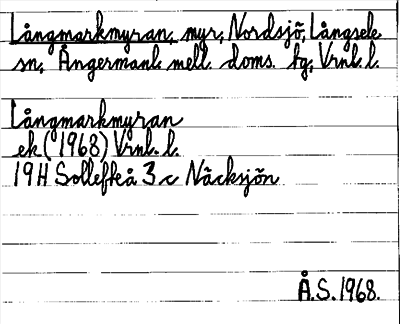 Långmarkmyran, myr, Nordsjö, Långsele
sn, Ångermanl. mell. doms. hg, Vrnl. l.
Långmarkmyran
ek (1968) Vrnl. l.
19H Sollefteå 3 c Näcksjön
Å.S. 1968.